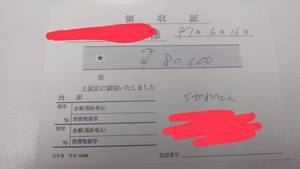 領 収 証
様 R7年 6月 16日
★ ¥ 80,100
但
上記正に領収いたしました
内 訳
税率 金額(税抜・税込)
% 消費税額等
税率 金額(税抜・税込)
% 消費税額等
登録番号